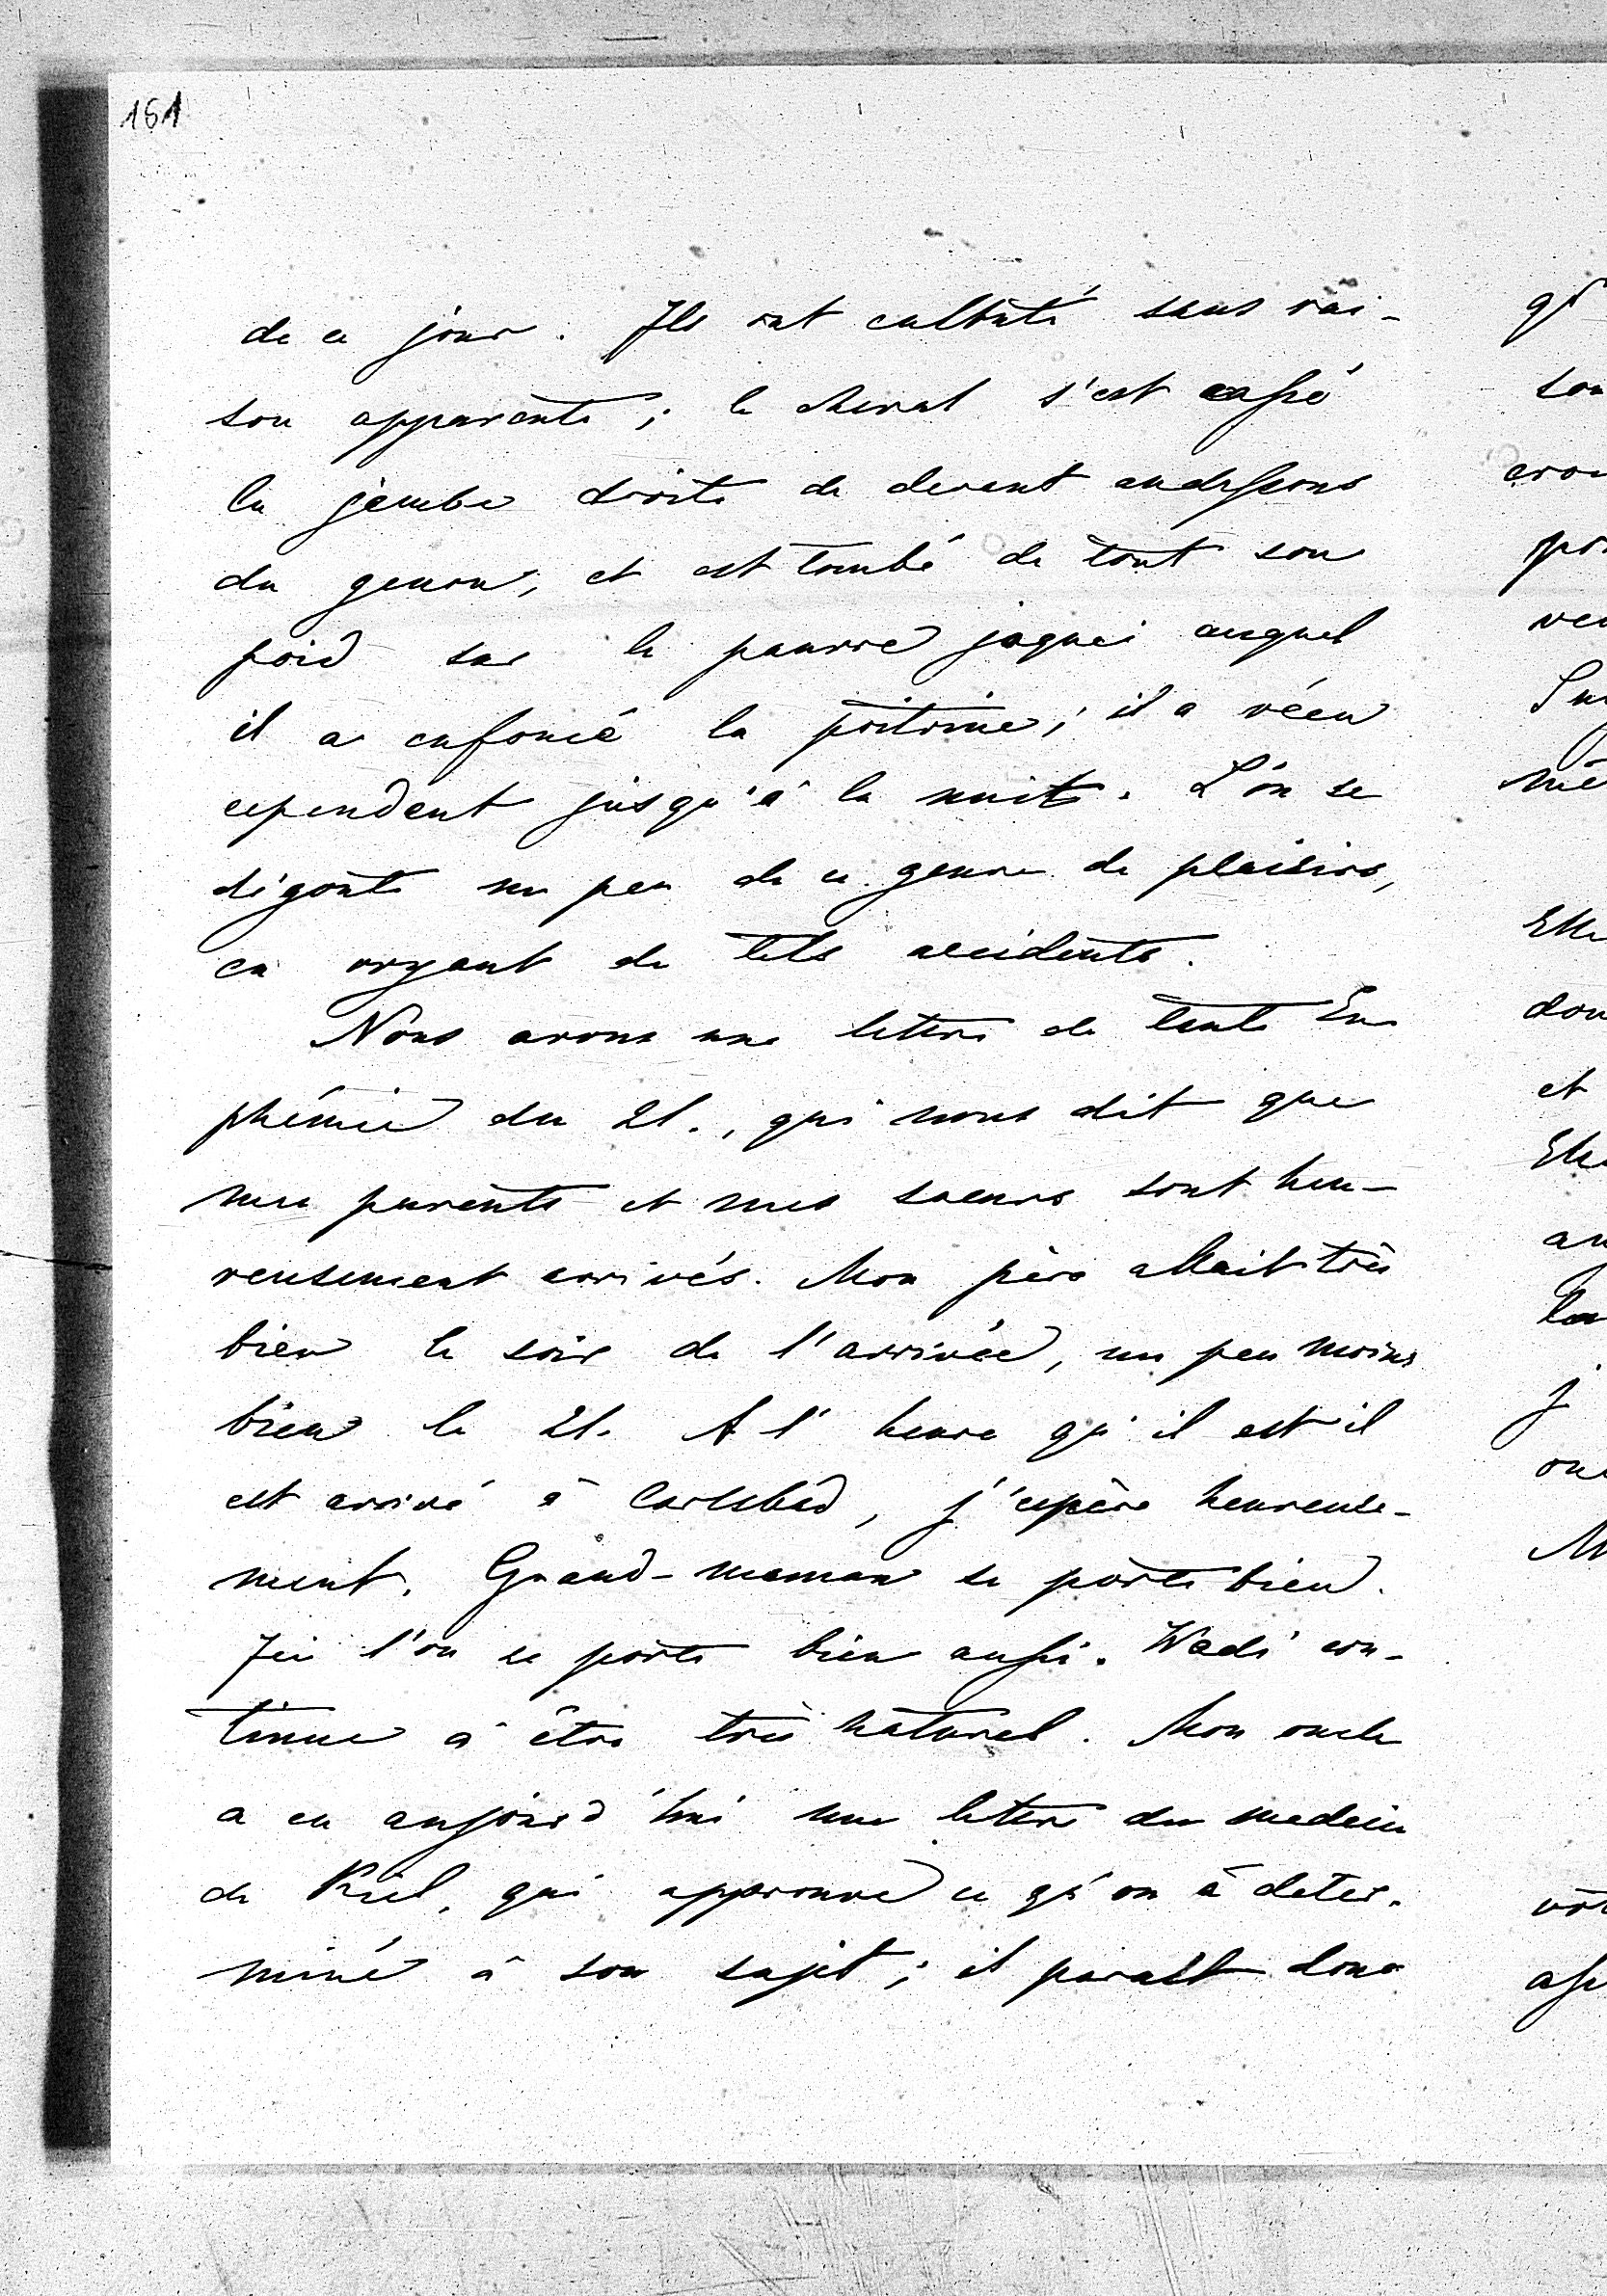 161
de ce jour. Ils ont culbuté sans rai-
son apparente; le cheval s'est cassé
la jambe droite de devant audessous
du genou, et est tombé de tout son
poid sur le pauvre jaquei auquel
il a enfoncé la poitrine; il a vécu
cependent jusqu'à la nuit. L'on se
dégoute un peu de ce genre de plaisirs,
en voyant de tels accidents.
Nous avons une lettre de tante Eu
phémie du 21., qui nous dit que
mes parents et mes soeurs sont heu-
reusement arrivés. Mon père allait très
bien le soir de l'arrivée, un peu moins
bien le 21. A l'heure qu'il est il
est arrivé à Carlsbad, j'espère heureuse-
ment. Grand-maman se porte bien.
Ici l'on se porte bien aussi. Wadi con-
tinue à être très naturel. Mon oncle
a eu aujourd'hui une lettre du medecin
de Kiel, qui approuve ce qu'on à deter-
miné à son sujet; il parait donc